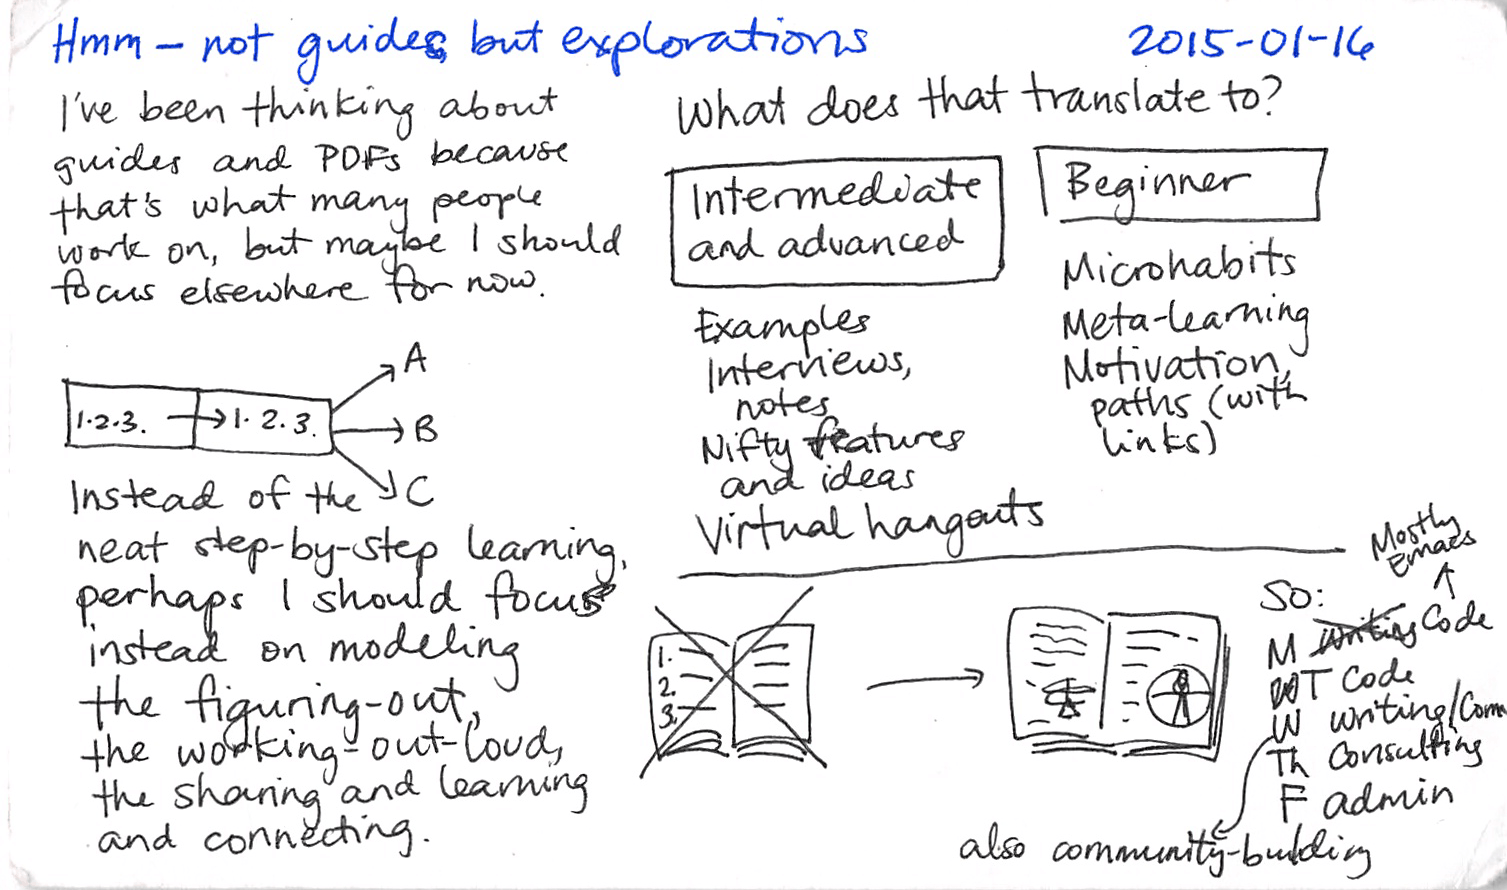 Hmm – not guides, but explorations
2015-01-16
I've been thinking about
guides and PDFs because
that's what many people
work on, but maybe I should
focus elsewhere for now.
1.2.3. → 1.2.3.
A
B
C
Instead of the
neat step-by-step learning,
perhaps I should focus
instead on modeling
the figuring-out,
the working-out-loud,
the sharing and learning
and connecting.
What does that translate to?
Intermediate
and advanced
Examples
Interviews,
notes
Nifty features
and ideas
Virtual hangouts
Beginner
Microhabits
Meta-learning
Motivation,
paths (with
links)
1.
2.
3.
Mostly
Emacs
So:
M Writing Code
T Code
W Writing/Comm
Th Consulting
F admin
also community-building